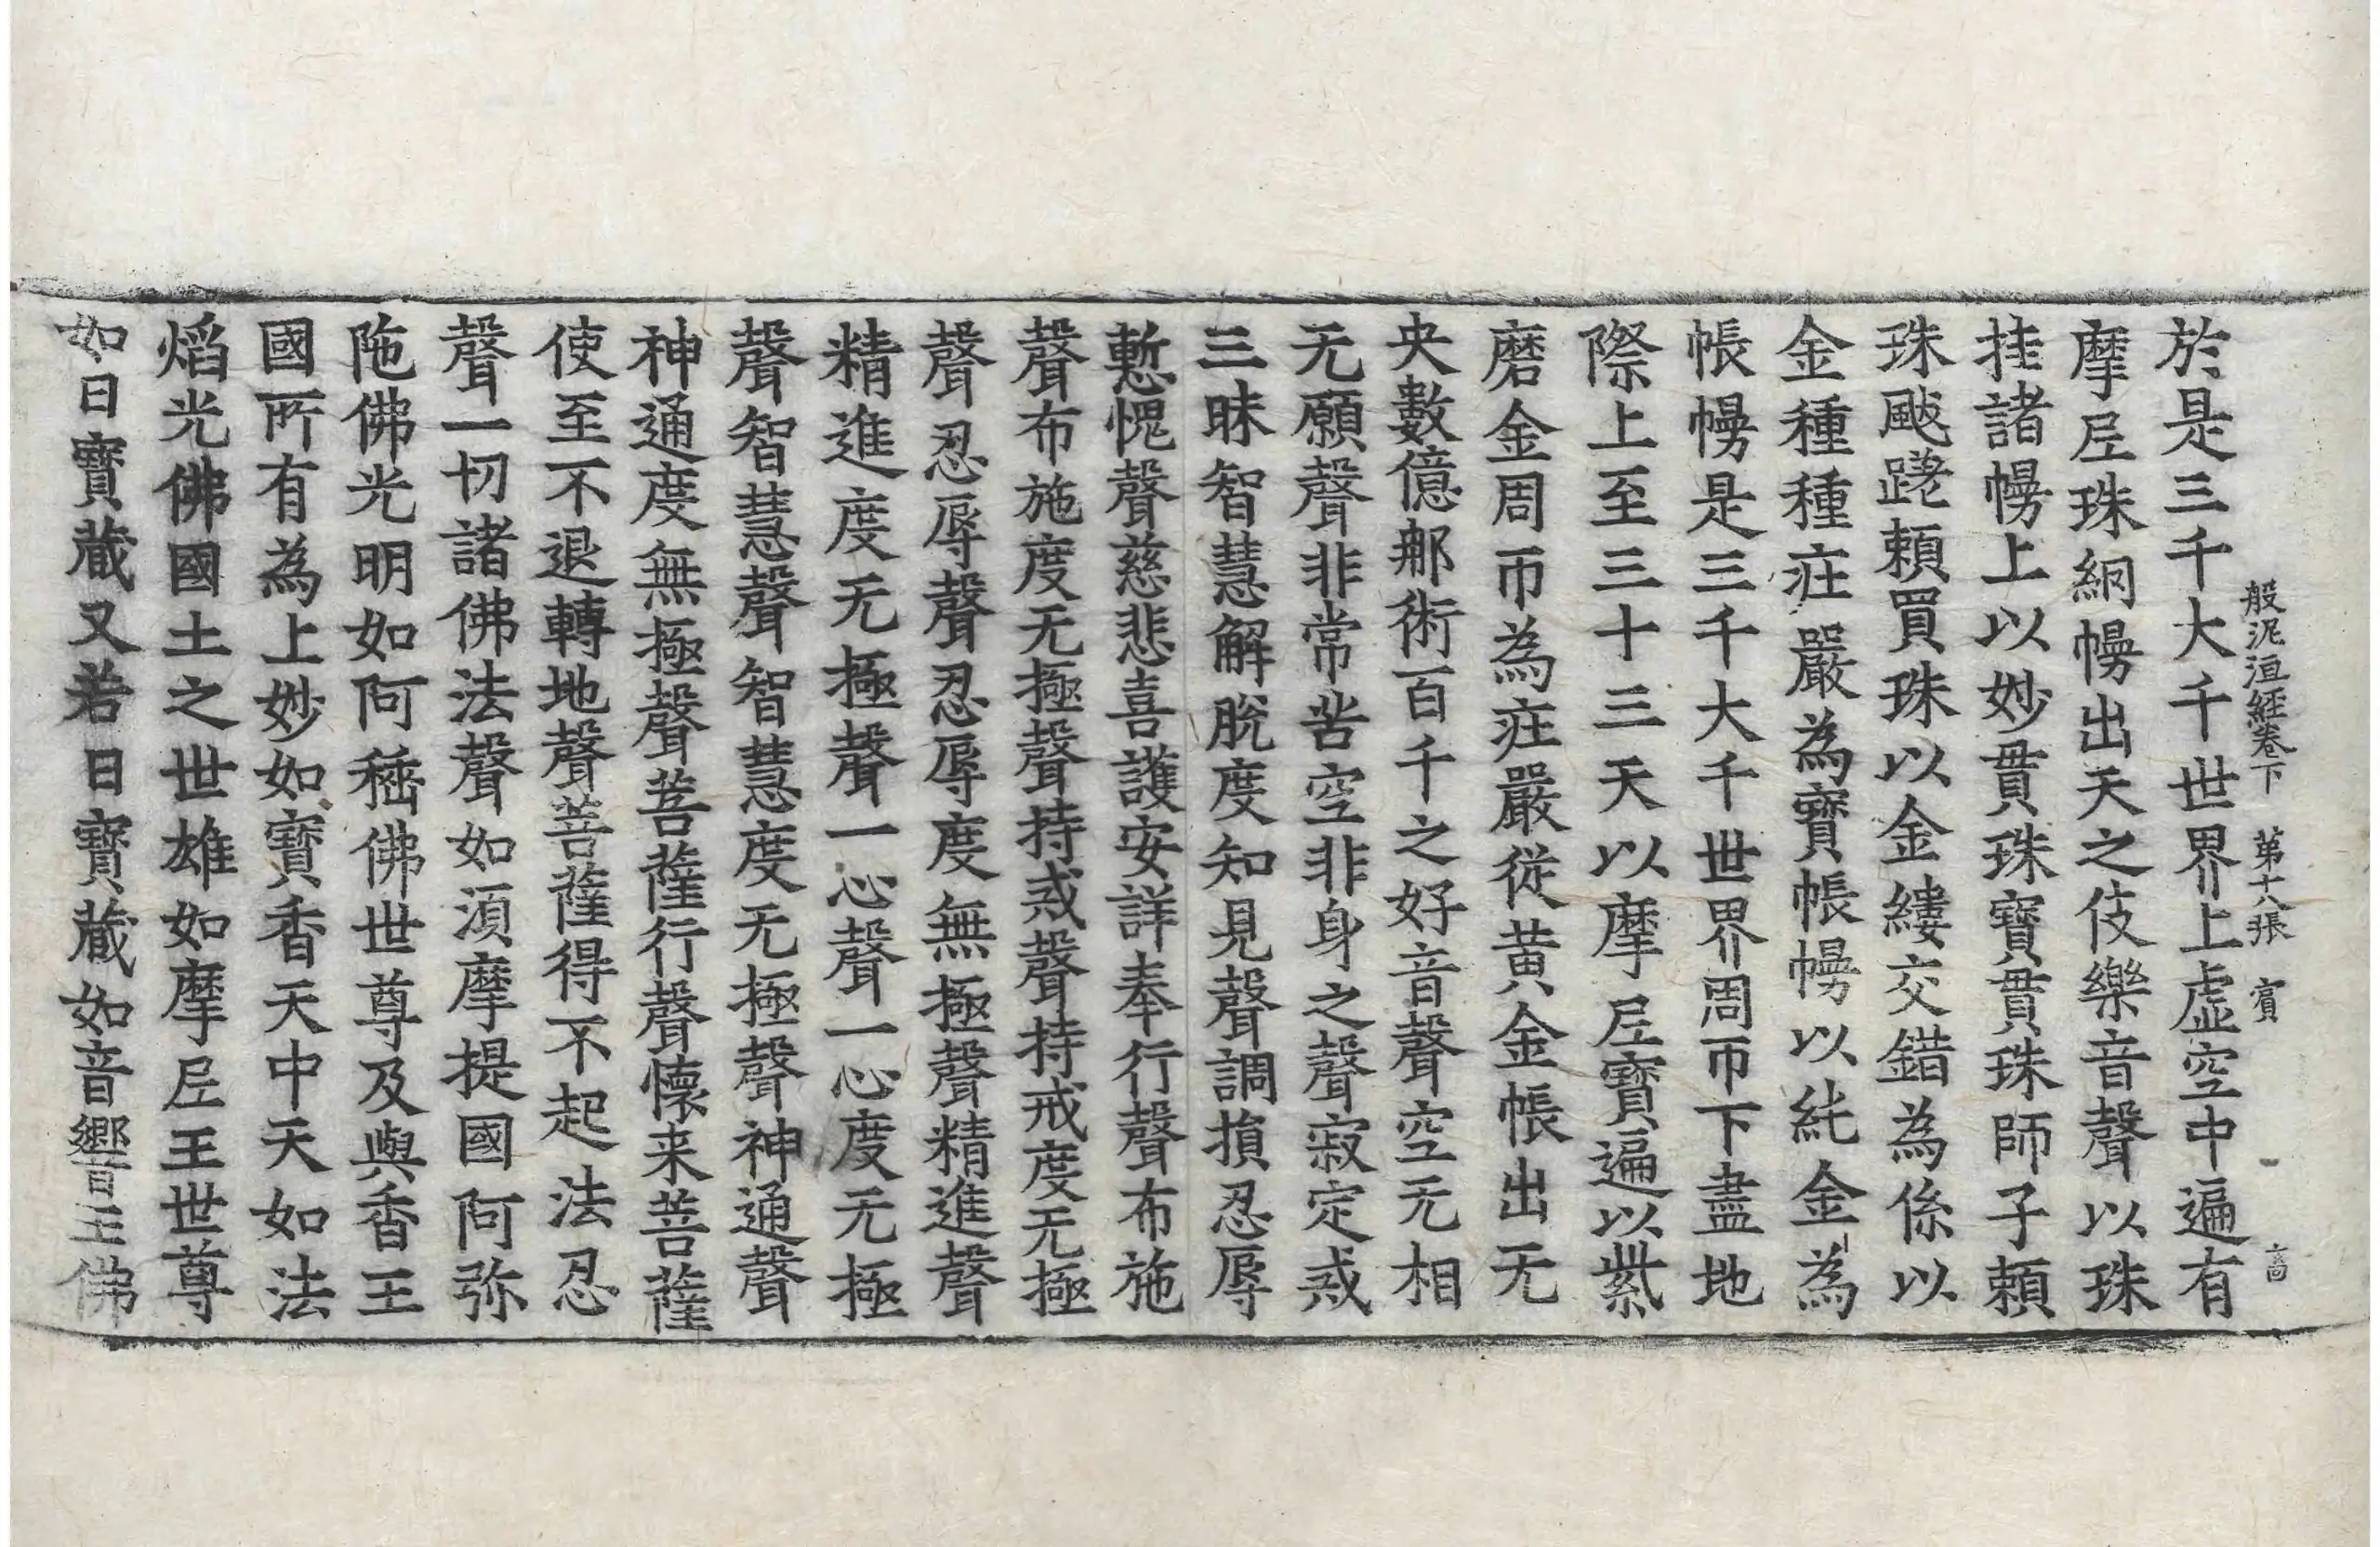 般泥洹經卷下 第十八張 賓
於是三千大千世界上虛空中遍有
摩尼珠網幔出天之伎樂音聲以珠
挂諸幔上以妙貫珠寶貫珠師子頼
珠颰蹝頼買珠以金縷交錯為係以
金種種莊嚴為寶帳幔以純金為
帳幔是三千大千世界周帀下盡地
際上至三十三天以摩尼寶遍以紫
磨金周帀為莊嚴從黃金帳出无
央數億那術百千之好音聲空无相
无願聲非常苦空非身之聲寂定戒
三昧智慧解脫度知見聲調損忍辱
慙愧聲慈悲喜護安詳奉行聲布施
聲布施度无極聲持戒聲持戒度无極
聲忍辱聲忍辱度無極聲精進聲
精進度无極聲一心聲一心度无極
聲智慧聲智慧度无極聲神通聲
神通度無極聲菩薩行聲懷来菩薩
使至不退轉地聲菩薩得不起法忍
聲一切諸佛法聲如湏摩提國阿弥
陁佛光明如阿𨲠佛世尊及與香王
國所有為上妙如寶香天中天如法
熖光佛國土之世雄如摩尼王世尊
如日寶藏又若日寶藏如音響王佛